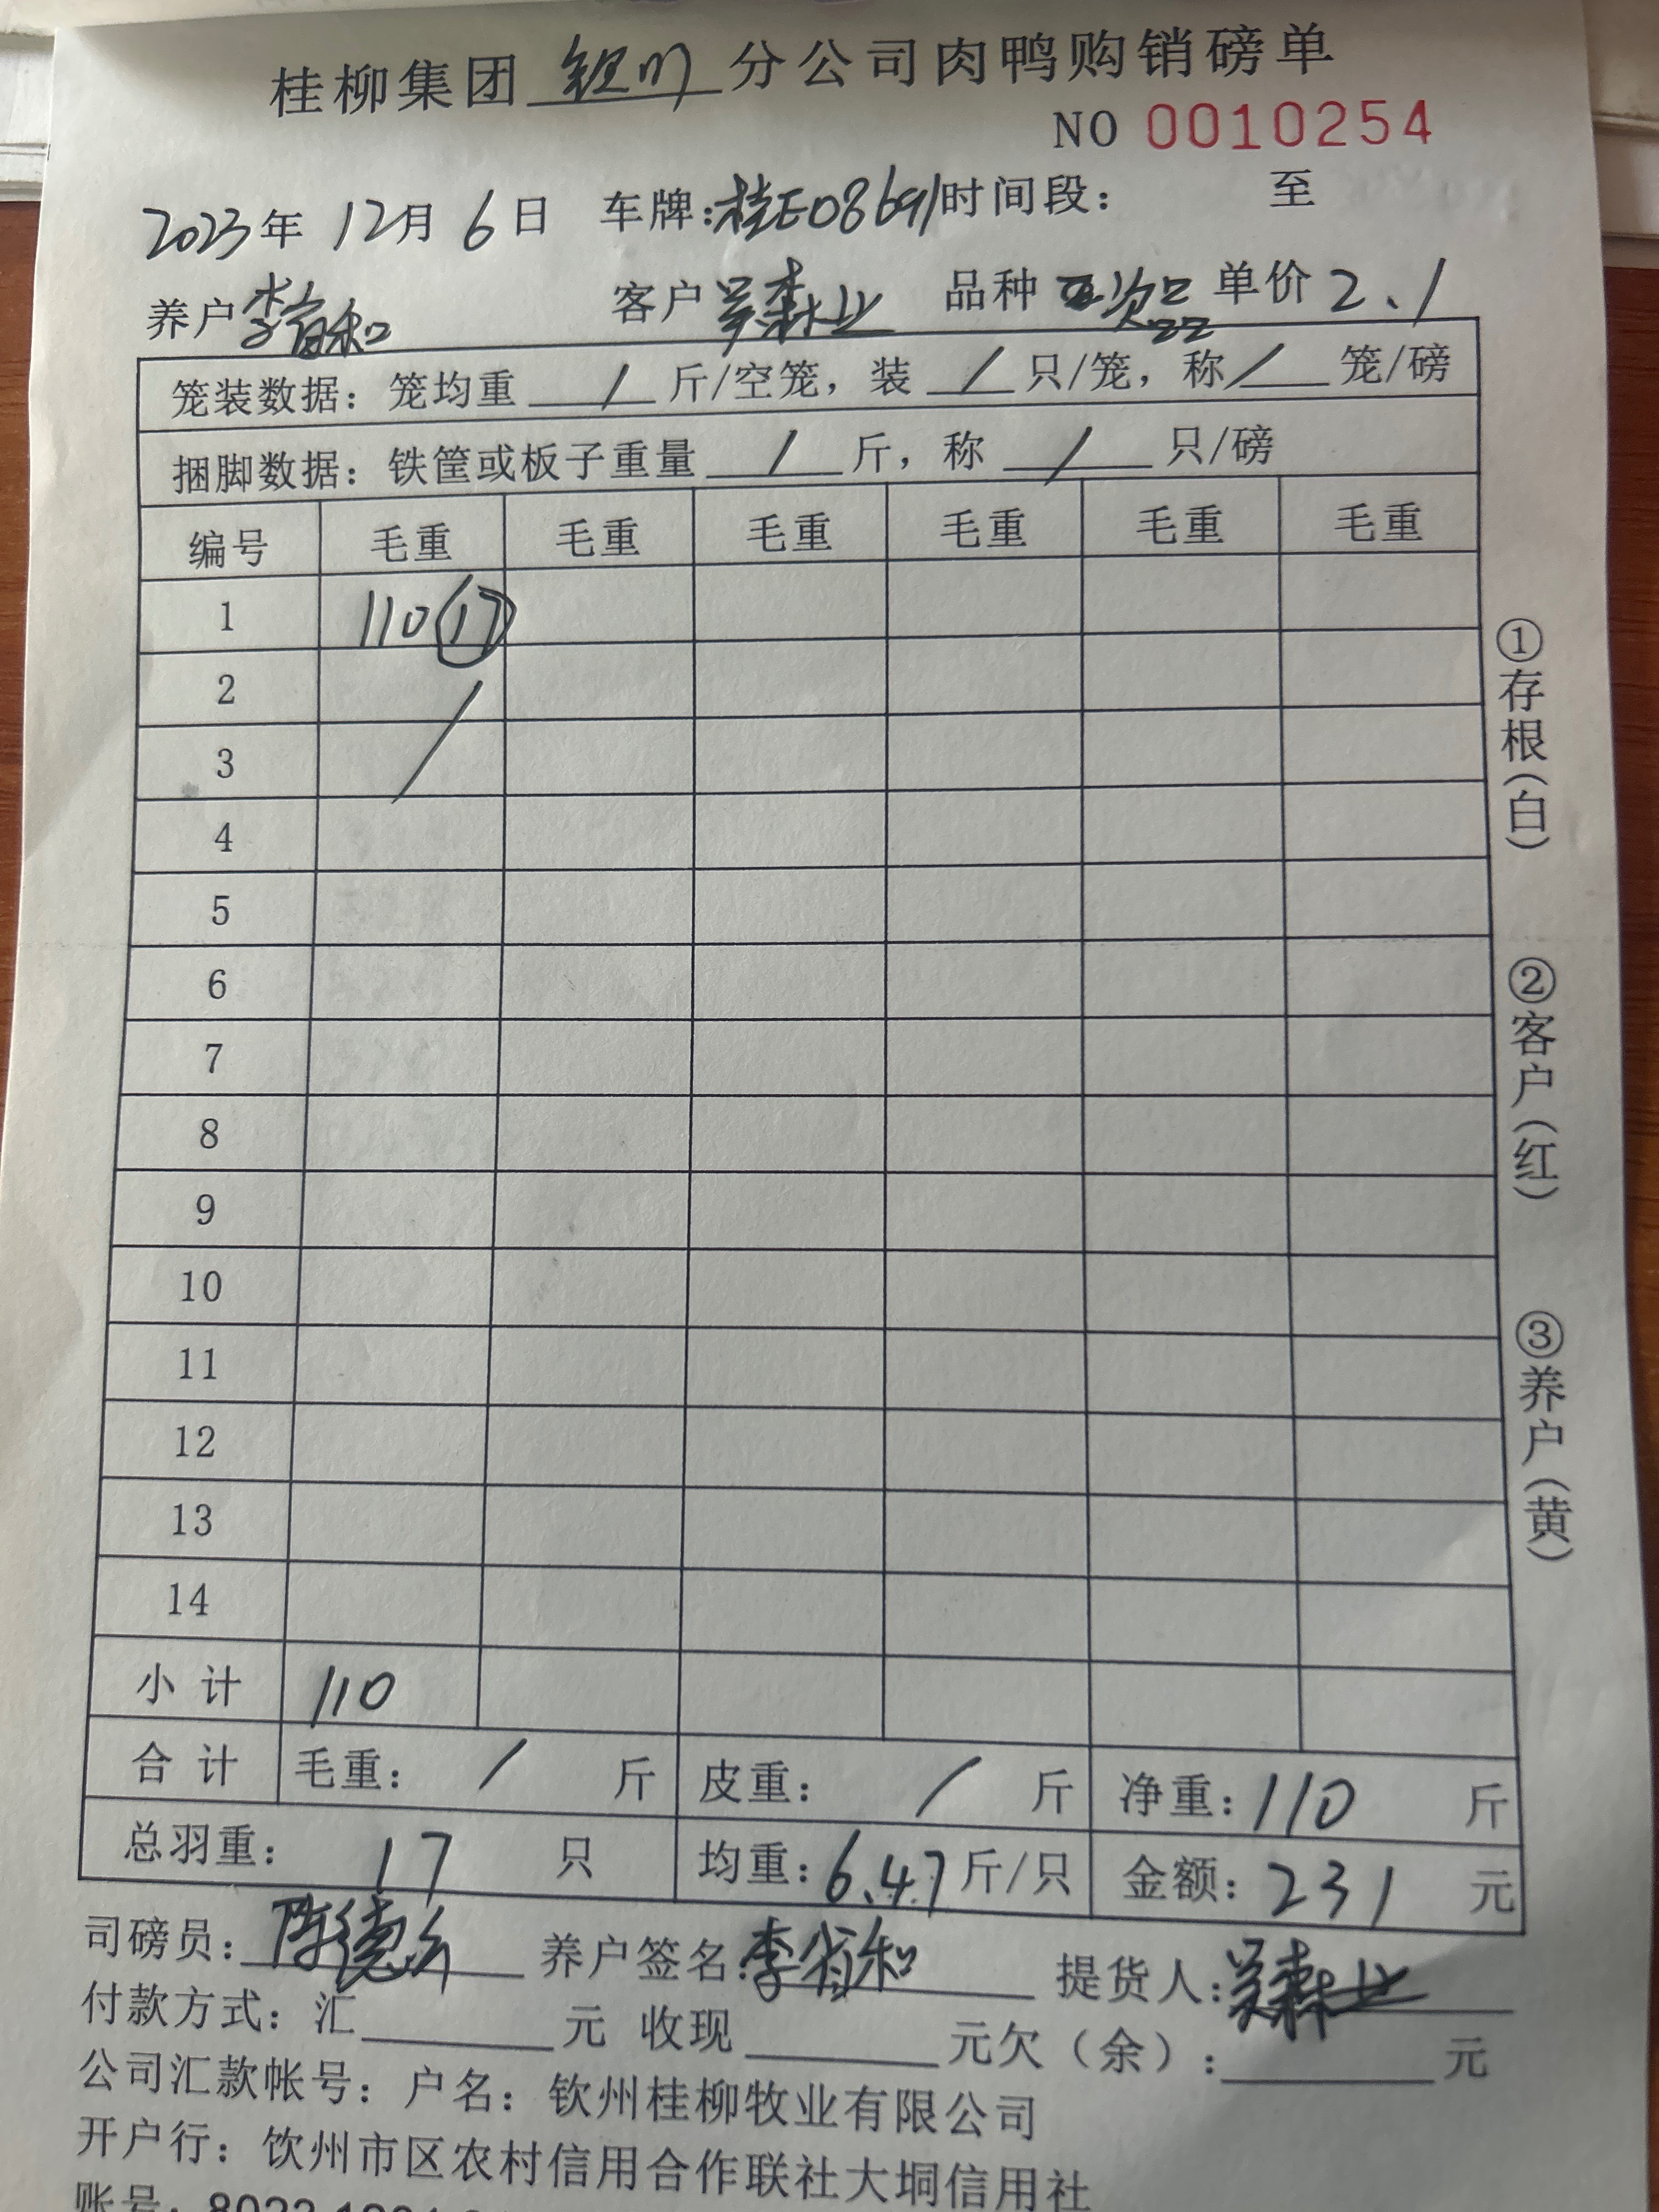 桂柳集团 钦州 分公司肉鸭购销磅单
NO 0010254
2023年 12月 6日 车牌:桂E08691 时间段: 至
养户 李省和 客户 吴森业 品种 次品 单价 2.1
笼装数据: 笼均重 / 斤/空笼, 装 / 只/笼, 称 / 笼/磅
捆脚数据: 铁筐或板子重量 / 斤, 称 / 只/磅
编号 毛重 毛重 毛重 毛重 毛重 毛重
1 110 17
2 /
3
4
5
6
7
8
9
10
11
12
13
14
小计 110
合计 毛重: / 斤 皮重: / 斤 净重: 110 斤
总羽重: 17 只 均重: 6.47 斤/只 金额: 231 元
司磅员: 养户签名: 李省和 提货人: 吴森业
付款方式: 汇 元 收现 元欠(余): 元
公司汇款帐号: 户名: 钦州桂柳牧业有限公司
开户行: 钦州市区农村信用合作联社大垌信用社
账号:
①存根(白) ②客户(红) ③养户(黄)